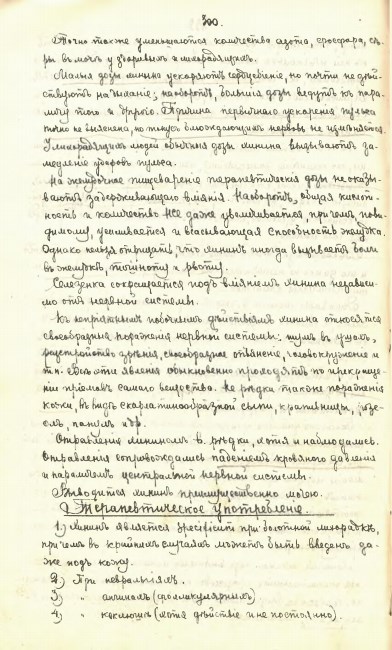 300.
Точно также уменьшаются количества азота, фосфора, сѣ-
ры въ мочѣ у здоровыхъ и лихорадящихъ.
Малыя дозы хинина ускоряютъ сердцебіеніе, но почти не дѣй-
ствуютъ на дыханіе; наоборотъ, большія дозы ведутъ къ пара-
личу того и другого. Причина первичнаго ускоренія пульса
точно не выяснена, но тонусъ блуждающихъ нервовъ не измѣняется.
У лихорадящихъ людей обычныя дозы хинина вызываютъ за-
медленіе ударовъ пульса.
На желудочное пищевареніе терапевтическія дозы не оказы-
ваютъ задерживающаго вліянія. Наоборотъ, общая кислот-
ность и количество HCl даже увеличивается, при чемъ, пови-
димому, усиливается и всасывающая способность желудка.
Однако нельзя отрицать, что хининъ иногда вызываетъ боли
въ желудкѣ, тошноту и рвоту.
Селезенка сокращается подъ вліяніемъ хинина независи-
мо отъ нервной системы.
Къ непріятнымъ побочнымъ дѣйствіямъ хинина относятся
своеобразныя пораженія нервной системы: шумъ въ ушахъ,
разстройство зрѣнія, своеобразное опьяненіе, головокруженіе и
т.п. Всѣ эти явленія обыкновенно проходятъ по прекраще-
ніи пріемовъ самаго вещества. Не рѣдки также пораженія
кожи, въ видѣ скарлатинообразной сыпи, крапивницы, розе-
олъ, папулъ и др.
Отравленія хининомъ рѣдки, хотя и наблюдались.
Отравленія сопровождались паденіемъ кровяного давленія
и параличемъ центральной нервной системы.
Выводится хининъ преимущественно мочею.
Терапевтическое употребленіе.
1) Хининъ является specificum при болотной лихорадкѣ,
при чемъ въ крайнихъ случаяхъ можетъ быть введенъ да-
же подъ кожу.
2) При невралгіяхъ.
3) " ангинахъ (фолликулярныхъ)
4) " коклюшѣ (хотя дѣйствіе и не постоянно).